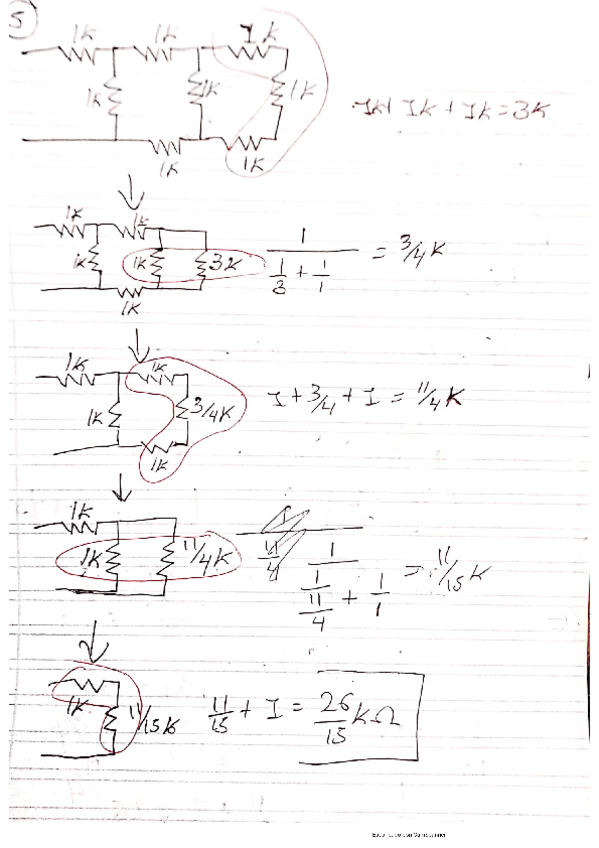 5
1K 1K 1K
1K 1K 1K
1K 1K
1K + 1K + 1K = 3K
1K 1K
1K 1K 3K
1K
1 / (1/3 + 1/1) = 3/4 K
1K 1K
1K 3/4 K
1K
1 + 3/4 + 1 = 11/4 K
1K
1K 11/4 K
1 / (1/(11/4) + 1/1) = 11/15 K
1K
11/15 K
11/15 + 1 = 26/15 KΩ